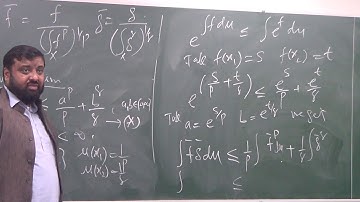 f̄ = f / (∫f^p)^{1/p}, ḡ = g / (∫g^q)^{1/q}
≤ a^p/p + b^q/q
(X)
μ(x₁) = 1/p
μ(x₂) = 1/q
e^{∫f dμ} ≤ ∫e^f dμ
Take f(x₁) = s f(x₂) = t
e^{(s/p + t/q)} ≤ e^s/p + e^t/q
Take a = e^{s/p} b = e^{t/q} we get
∫ f̄ ḡ dμ ≤ 1/p ∫ f̄^p dμ + 1/q ∫ ḡ^q
∫ ≤